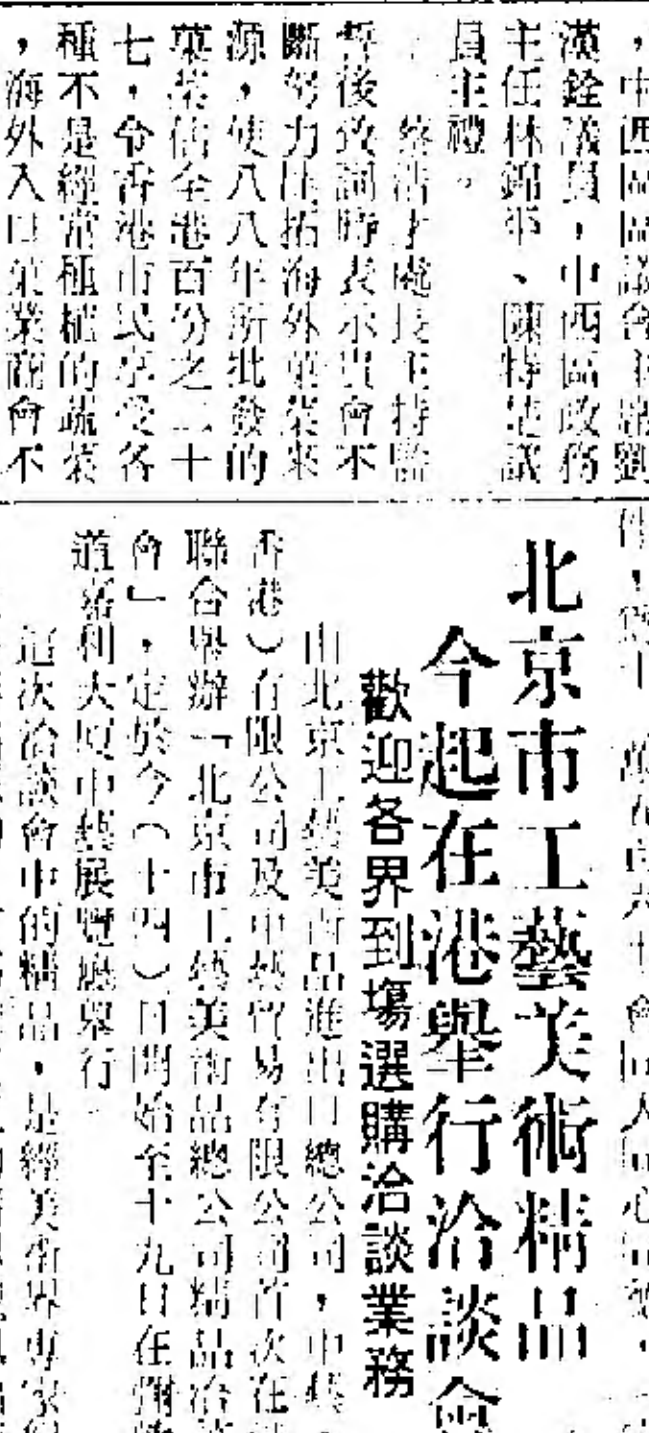 ，中西區區議會主席劉
漢銓議員，中西區政務
主任林錦平、陳特楚議
員主禮。
蔡浩才處長主持監
誓後致詞時表示貴會不
斷努力開拓海外菓菜來
源，使八八年所批發的
菓菜佔全港百份之二十
七，令香港市民享受各
種不是經常種植的蔬菜
，海外入口菓業商會不
北京市工藝美術精品
今起在港舉行洽談會
歡迎各界到場選購洽談業務
由北京工藝美術品進出口總公司，中藝（
香港）有限公司及中藝貿易有限公司首次在
聯合舉辦「北京市工藝美術品總公司精品洽談
會」，定於今（十四）日開始至十九日在彌敦
道喜利大廈中藝展覽廳舉行。
這次洽談會中的精品，是經美術界專家